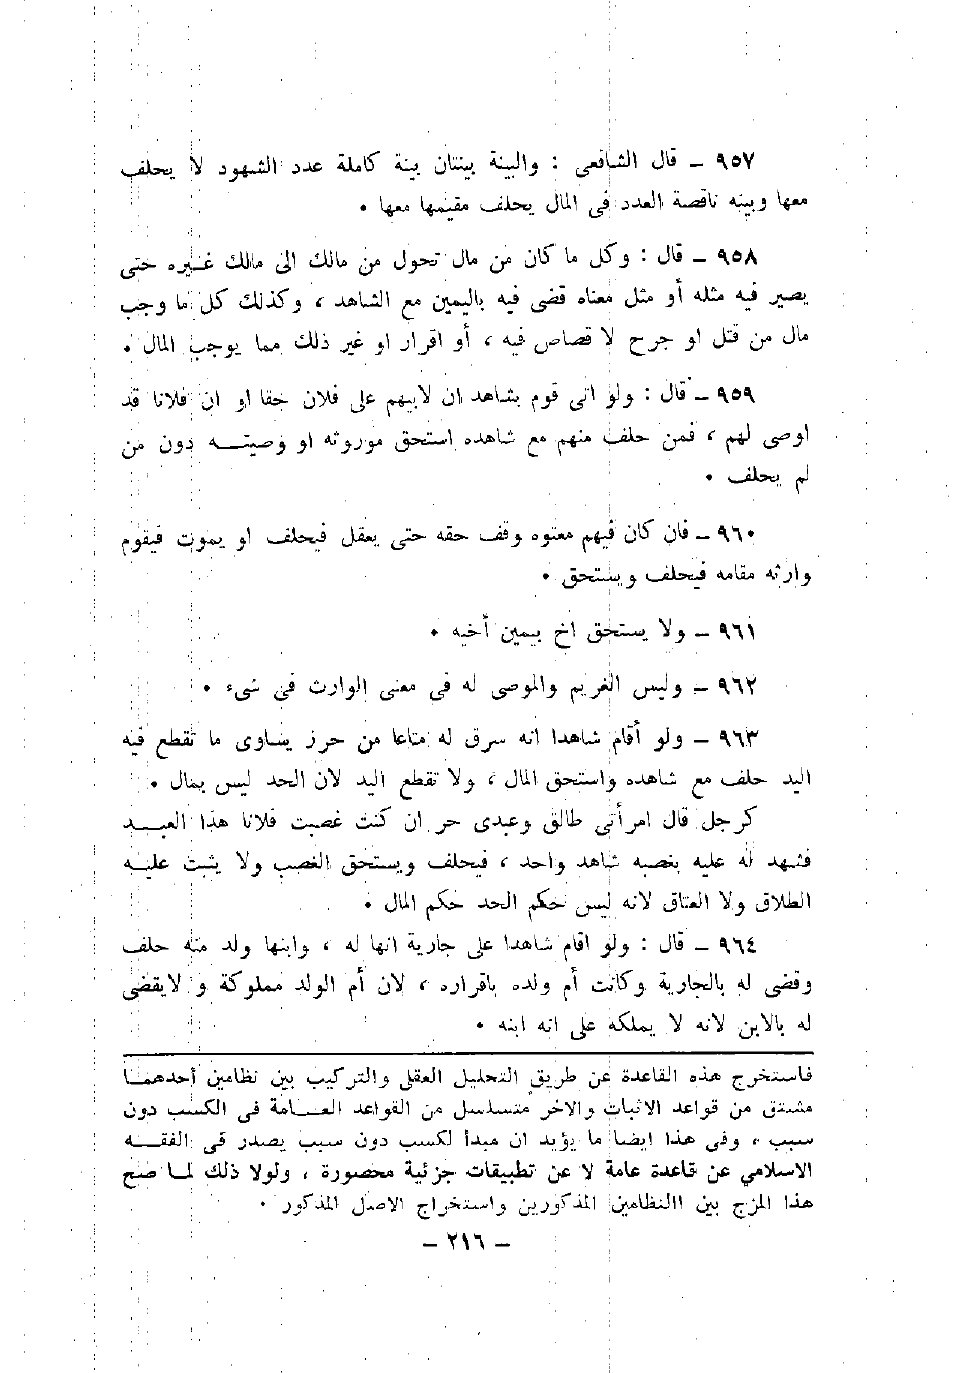 ٩٥٧ ــ قال الشافعى : والبينة بينتان بينة كاملة عدد الشهود لا يحلف
معها وبينه ناقصة العدد فى المال يحلف مقيمها معها •
٩٥٨ ــ قال : وكل ما كان من مال تحول من مالك الى مالك غـيره حتى
يصير فيه مثله أو مثل معناه قضى فيه باليمين مع الشاهد ، وكذلك كل ما وجب
مال من قتل او جرح لا قصاص فيه ، أو اقرار او غير ذلك مما يوجب المال •
٩٥٩ ــ قال : ولو اتى قوم بشاهد ان لابيهم على فلان حقا او ان فلانا قد
اوصى لهم ، فمن حلف منهم مع شاهده استحق موروثه او وصيتــــه دون من
لم يحلف •
٩٦٠ ــ فان كان فيهم معتوه وقف حقه حتى يعقل فيحلف او يموت فيقوم
وارثه مقامه فيحلف ويستحق •
٩٦١ ــ ولا يستحق اخ بيمين أخيه •
٩٦٢ ــ وليس الغريم والموصى له فى معنى الوارث فى شىء •
٩٦٣ ــ ولو أقام شاهدا انه سرق له متاعا من حرز يساوى ما تقطع فيه
اليد حلف مع شاهده واستحق المال ، ولا تقطع اليد لان الحد ليس بمال •
كرجل قال امرأتى طالق وعبدى حر ان كنت غصبت فلانا هذا العبــد
فشهد له عليه بغصبه شاهد واحد ، فيحلف ويستحق الغصب ولا يثبت عليــه
الطلاق ولا العتاق لانه ليس حكم الحد حكم المال •
٩٦٤ ــ قال : ولو اقام شاهدا على جارية انها له ، وابنها ولد منه حلف
وقضى له بالجارية وكانت أم ولده باقراره ، لان أم الولد مملوكة و لايقضى
له بالابن لانه لا يملكه على انه ابنه •
فاستخرج هذه القاعدة عن طريق التحليل العقلى والتركيب بين نظامين أحدهمـا
مشتق من قواعد الاثبات والاخر متسلسل من القواعد العــامة فى الكسب دون
سبب ، وفى هذا ايضا ما يؤيد ان مبدا لكسب دون سبب يصدر فى الفقــه
الاسلامي عن قاعدة عامة لا عن تطبيقات جزئية محصورة ، ولولا ذلك لمـا صح
هذا المزج بين االنظامين المذكورين واستخراج الاصل المذكور •
ــ ٢١٦ ــ